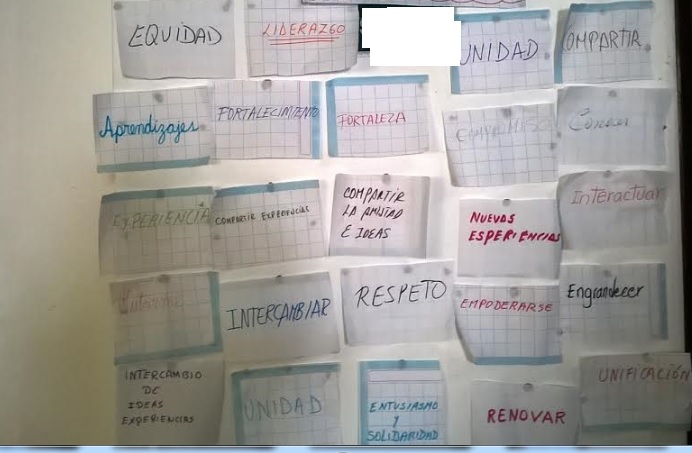 EQUIDAD
LIDERAZGO
UNIDAD
COMPARTIR
Aprendizajes
FORTALECIMIENTO
FORTALEZA
COMPROMISO
Conocer
EXPERIENCIA
COMPARTIR EXPERIENCIAS
COMPARTIR
LA AMISTAD
E IDEAS
NUEVAS
ESPERIENCIAS
Interactuar
INTERCAMBIAR
RESPETO
EMPODERARSE
Engrandecer
INTERCAMBIO
DE
IDEAS
EXPERIENCIAS
UNIDAD
ENTUSIASMO
Y
SOLIDARIDAD
RENOVAR
UNIFICACIÓN